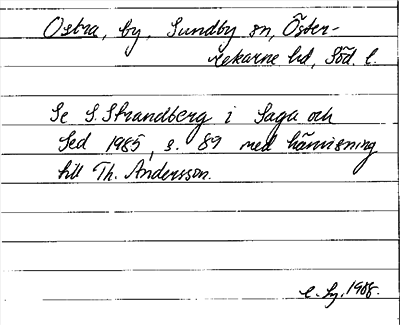 Ostra, by, Sundby sn, Öster-
rekarne hd, Söd. l.
Se S. Strandberg i Saga och
Sed 1985, s. 89 med hänvisning
till Th. Andersson.
1988.